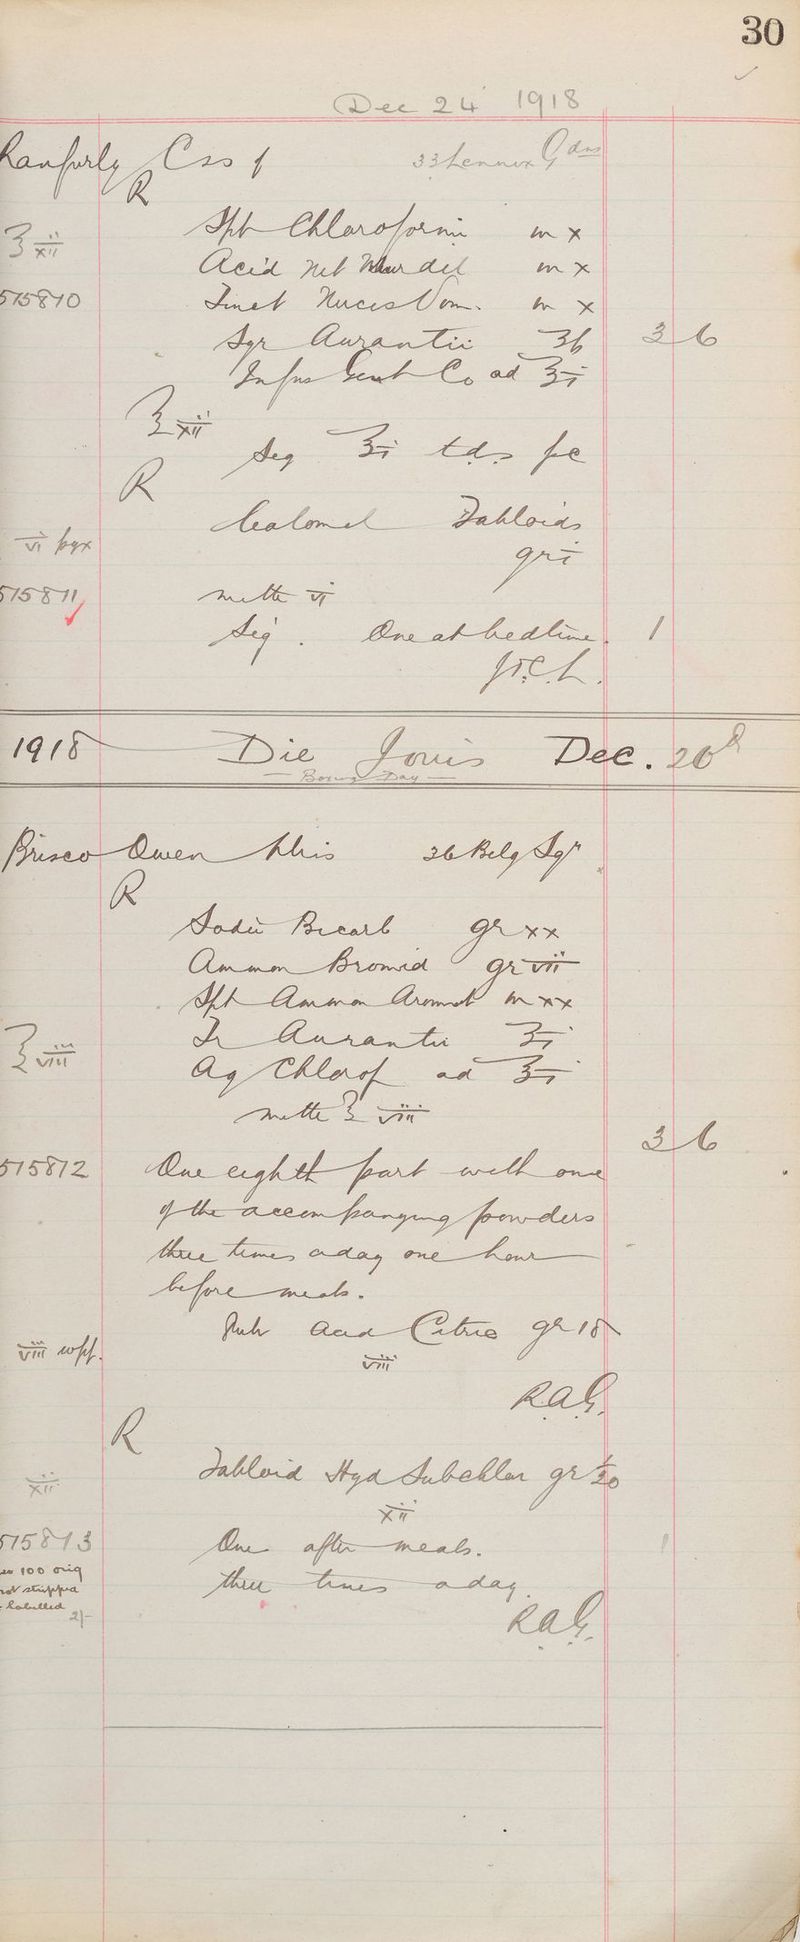 30
Dec 24 1918
Ranfurly Css of 33 Lennox Gdns
R
Spt Chloroformi m x
℥ xii
Acid Nit Mur dil m x
515810 Tinct Nucis Vom. m x
Syr Aurantii ʒ 3 6
Infus Gent Co ad ℥i
℥xii
Sig ℥i t.d.s pc
R
Calomel Tabloids
vi pyx gr i
515811 mitte vi
Sig. One at bedtime. 1
1918 Die Jovis Dec. 26th
Boxing Day
Brisco Owen Mis 36 Belg Sqr
R
Sodii Bicarb gr xx
Ammon Bromid gr vii
Spt Ammon Aromat m xx
Tr Aurantii ʒi
℥viii
Aq Chlorof ad ℥i
mitte ℥ viii
3 6
515812 One eighth part with one
of the accompanying powders
three times a day one hour
before meals.
Pulv Acid Citric gr 18
viii
R.A.G.
R
Tabloid Hyd Subchlor gr 1/20
xii xii
515813 One after meals. 1
100 orig
not stripped three times a day.
labelled
2/-
R.A.G.